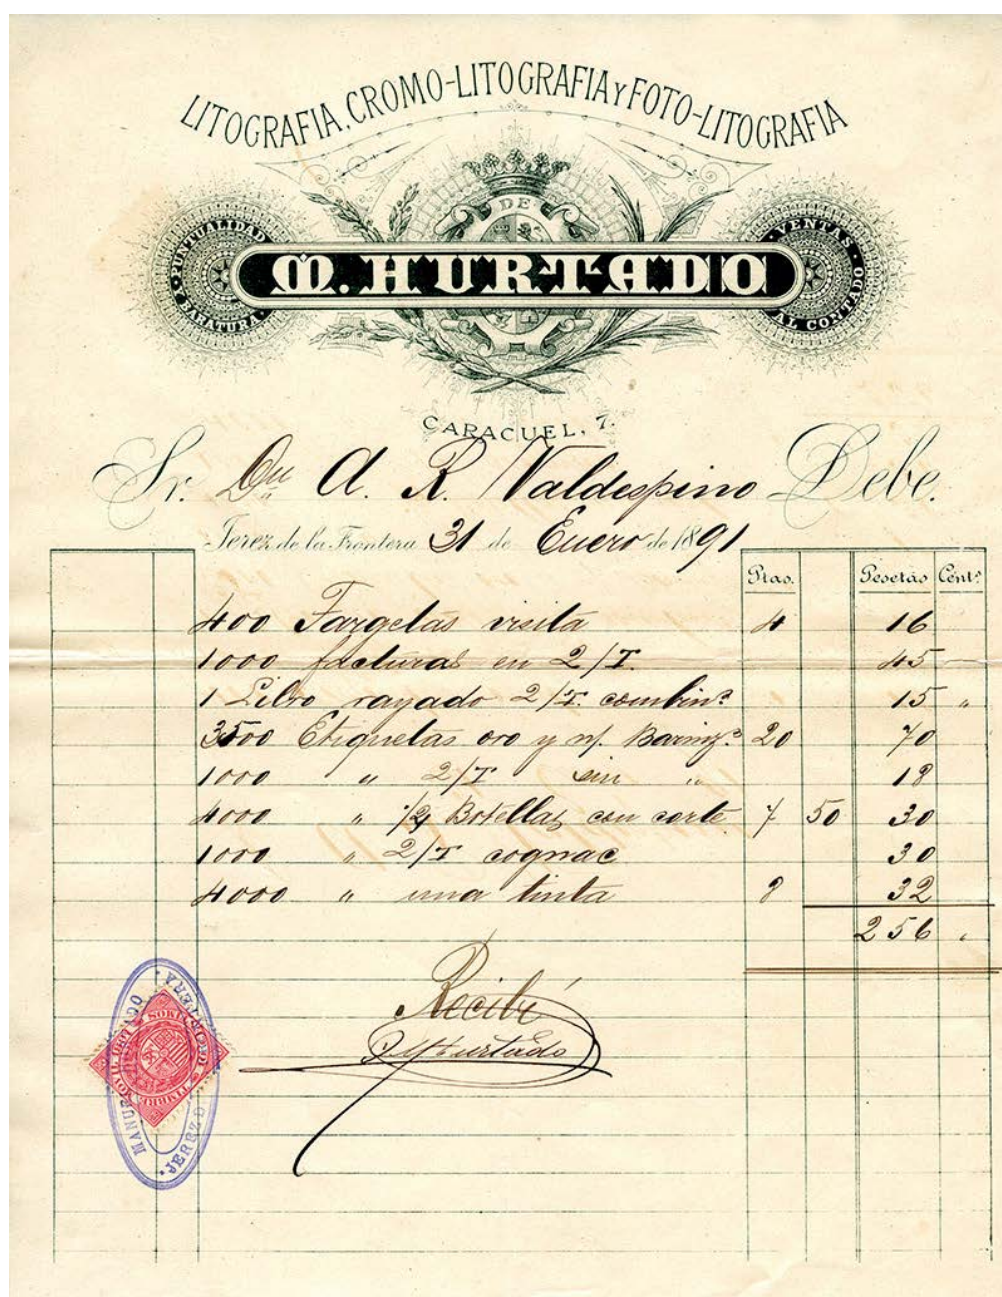 LITOGRAFIA, CROMO-LITOGRAFIA Y FOTO-LITOGRAFIA
DE
PUNTUALIDAD Y BARATURA
M. HURTADO
VENTAS AL CONTADO
CARACUEL, 7.
Sr. Dn A. R. Valdespino Debe.
Jerez de la Frontera 31 de Enero de 1891
Ptas. Pesetas Cents
400 Targetas visita 4 16
1000 facturas en 2/T. 45 —
1 Libro rayado 2/T. combin.ⁿ 15 "
3500 Etiquetas oro y n/. Barniz.ⁿ 20 70
1000 " 2/T sin " 18
4000 " 1/2 Botellas con corte 7 50 30
1000 " 2/T cognac 30
4000 " una tinta 8 32
256 "
Recibí
M Hurtado
MANUEL HURTADO
JEREZ D FRONTERA
TIMBRE MOVIL 10 CENTIMOS